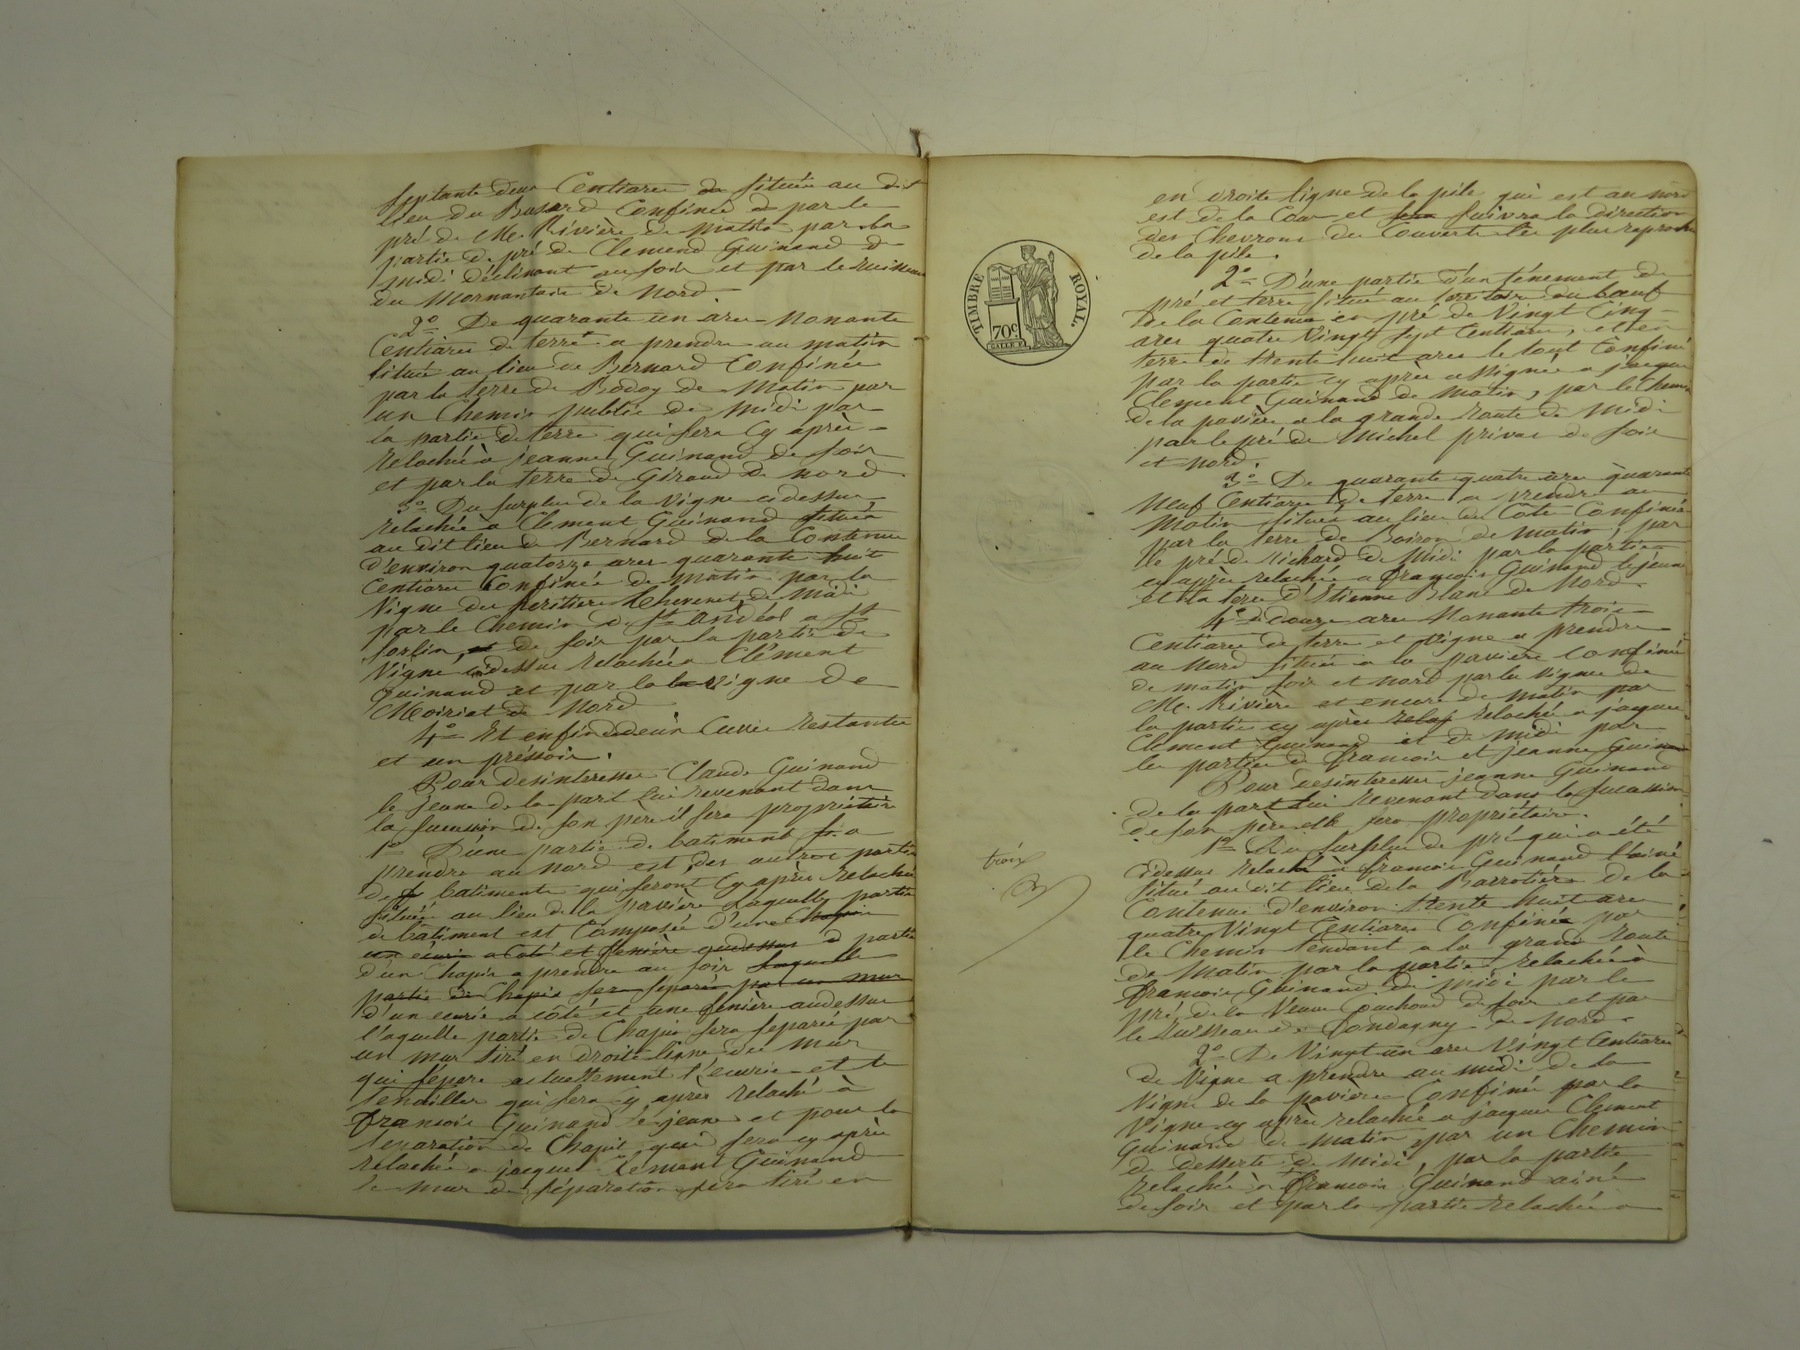 septante deux Centiares de située au dit
lieu du Busard Confinée de par le
pré de Mr. Rivière de matin par la
partie de pré de Clement Guinand de
midi déclinant au soir et par le ruisseau
du Mornantais de Nord.
2o De quarante un ares Nonante
Centiares de terre a prendre au matin
située au lieu de Bernard Confinée
par la terre de Bodoy de Matin par
un Chemin public de Midi par
la partie de terre qui sera cy après
relachée à jeanne Guinand de soir
et par la terre de Giraud de nord
3o Du surplus de la vigne cidessus
relachée a Clement Guinand située
au dit lieu de Bernard de la Contenue
d'environ quatorze ares quarante huit
Centiares Confinée de matin par la
Vigne des héritiers Chevenet, de Midi
par le Chemin de St Andéol a St
Sorlin, et de soir par la partie de
Vigne cidessus relachée a Clément
Guinand et par la la vigne de
Moiriat de Nord
4o Et enfin de deux Cuves restantes
et un préssoir.
Pour desinteresser Claude Guinand
le jeune de la part lui revenant dans
la sucession de son pere il sera propriétaire
1o D'une partie de batiment a
prendre au nord est, des autres parties
de batiments qui seront cy après relachés
située au lieu de la pavière Laquelle partie
de bâtiment est composée d'une Chapit
un écurie a Coté et fenière audessus de partie
d'un Chapit a prendre au soir laquelle
partie de Chapit sera separée par un mur
d'un ecurie a côté et une fenière audessus
l'aquelle partie de Chapit sera separée par
un mur tiré en droite ligne du mur
qui sépare actuellement l'ecurie et le
tenailler qui sera cy après relaché à
francois Guinand le jeune et pour la
separation de Chapit qui sera cy après
relachée a jacques Clement Guinand
le mur de séparation sera tiré en
TIMBRE ROYAL.
70c
en droite ligne de la pile qui est au nord
est de la Cour et sera suivra la direction
des Chevrons du Couvert les plus raproché
de la pile.
2o D'une partie d'un ténement de
pré et terre situé au territoire du boeuf
de la Contenue en pré de Vingt Cinq
ares quatre Vingt sept Centiares, et en
terre de trente huit ares le tout Confiné
par la partie cy après assignée a jacques
Clement Guinand de Matin, par le Chemin
de la pavière a la grande route de Midi
par le pré de Michel privas de soir
et nord.
3o De quarante quatre ares quarante
Neuf Centiares de terre a prendre au
Matin située au lieu du Côte Confinée
par la terre de Boiron de matin, par
le pré de Richard de Midi par la partie
cy après relachée a francois Guinand le jeune
et la terre d'Etienne Blanc de Nord.
4o de douze ares Nonante trois
Centiares de terre et Vigne a prendre
au Nord située a la pavière Confinée
de matin soir et nord par les vignes de
Mr. Rivière et encore de matin par
la partie cy après relaj relachée a jacques
Clement Guinand et de midi par
les parties de francois et jeanne Guinand
Pour desinteresser jeanne Guinand
de la part lui revenant dans la sucession
de son père elle sera propriétaire.
1o Du surplus de pré qui a été
cidessus relaché à francois Guinand l'ainé
situé au dit lieu de la Barrotière de la
Contenue d'environ trente huit ares
quatre Vingt Centiares Confinée par
le Chemin tendant a la grande route
de Matin par la partie relachée à
francois Guinand de midi par le
pré de la Veuve Couchoud de soir et par
le ruisseau de Condagny de Nord.
trois
2o De Vingt un ares Vingt Centiares
de Vigne a prendre au midi de la
Vigne de la pavière Confinée par la
Vigne cy après relachée a jacques Clement
Guinand de matin, par un Chemin
de desserte de Midi, par la partie
relachée à francois Guinand ainé
de soir et par la partie relachée a